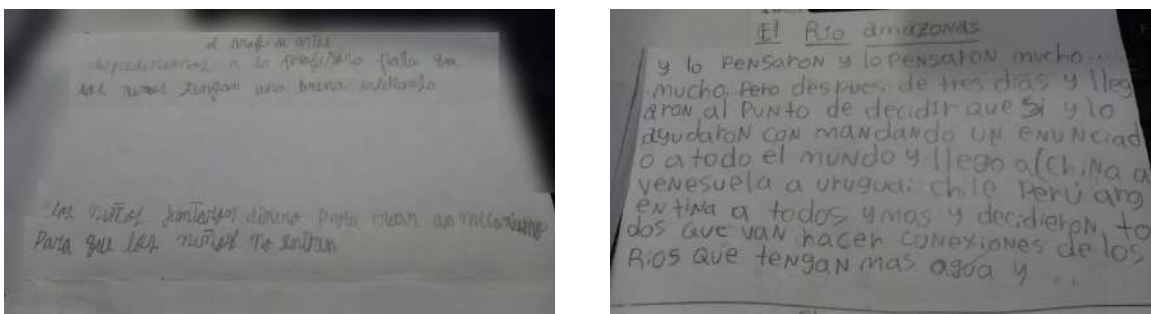 el profe de artes
a la
los niños tengan una buena
los niños juntaron dinero para crear un mecanismo
Para que los niños no entren
El Rio amazonas
y lo PENSaroN y lo PENSaroN mucho....
mucho. Pero despues de tres dias y lleg
aroN al PuNto de decidir que Si y lo
ayudaroN coN maNdaNdo uN eNuNciad
o a todo el muNdo y llego a ChiNa a
veNesuela a uruguai chile Perú arg
eNtiNa a todos y mas y decidieroN to
dos que vaN hacer coNexioNes de los
Rios que teNgaN mas agua y ...